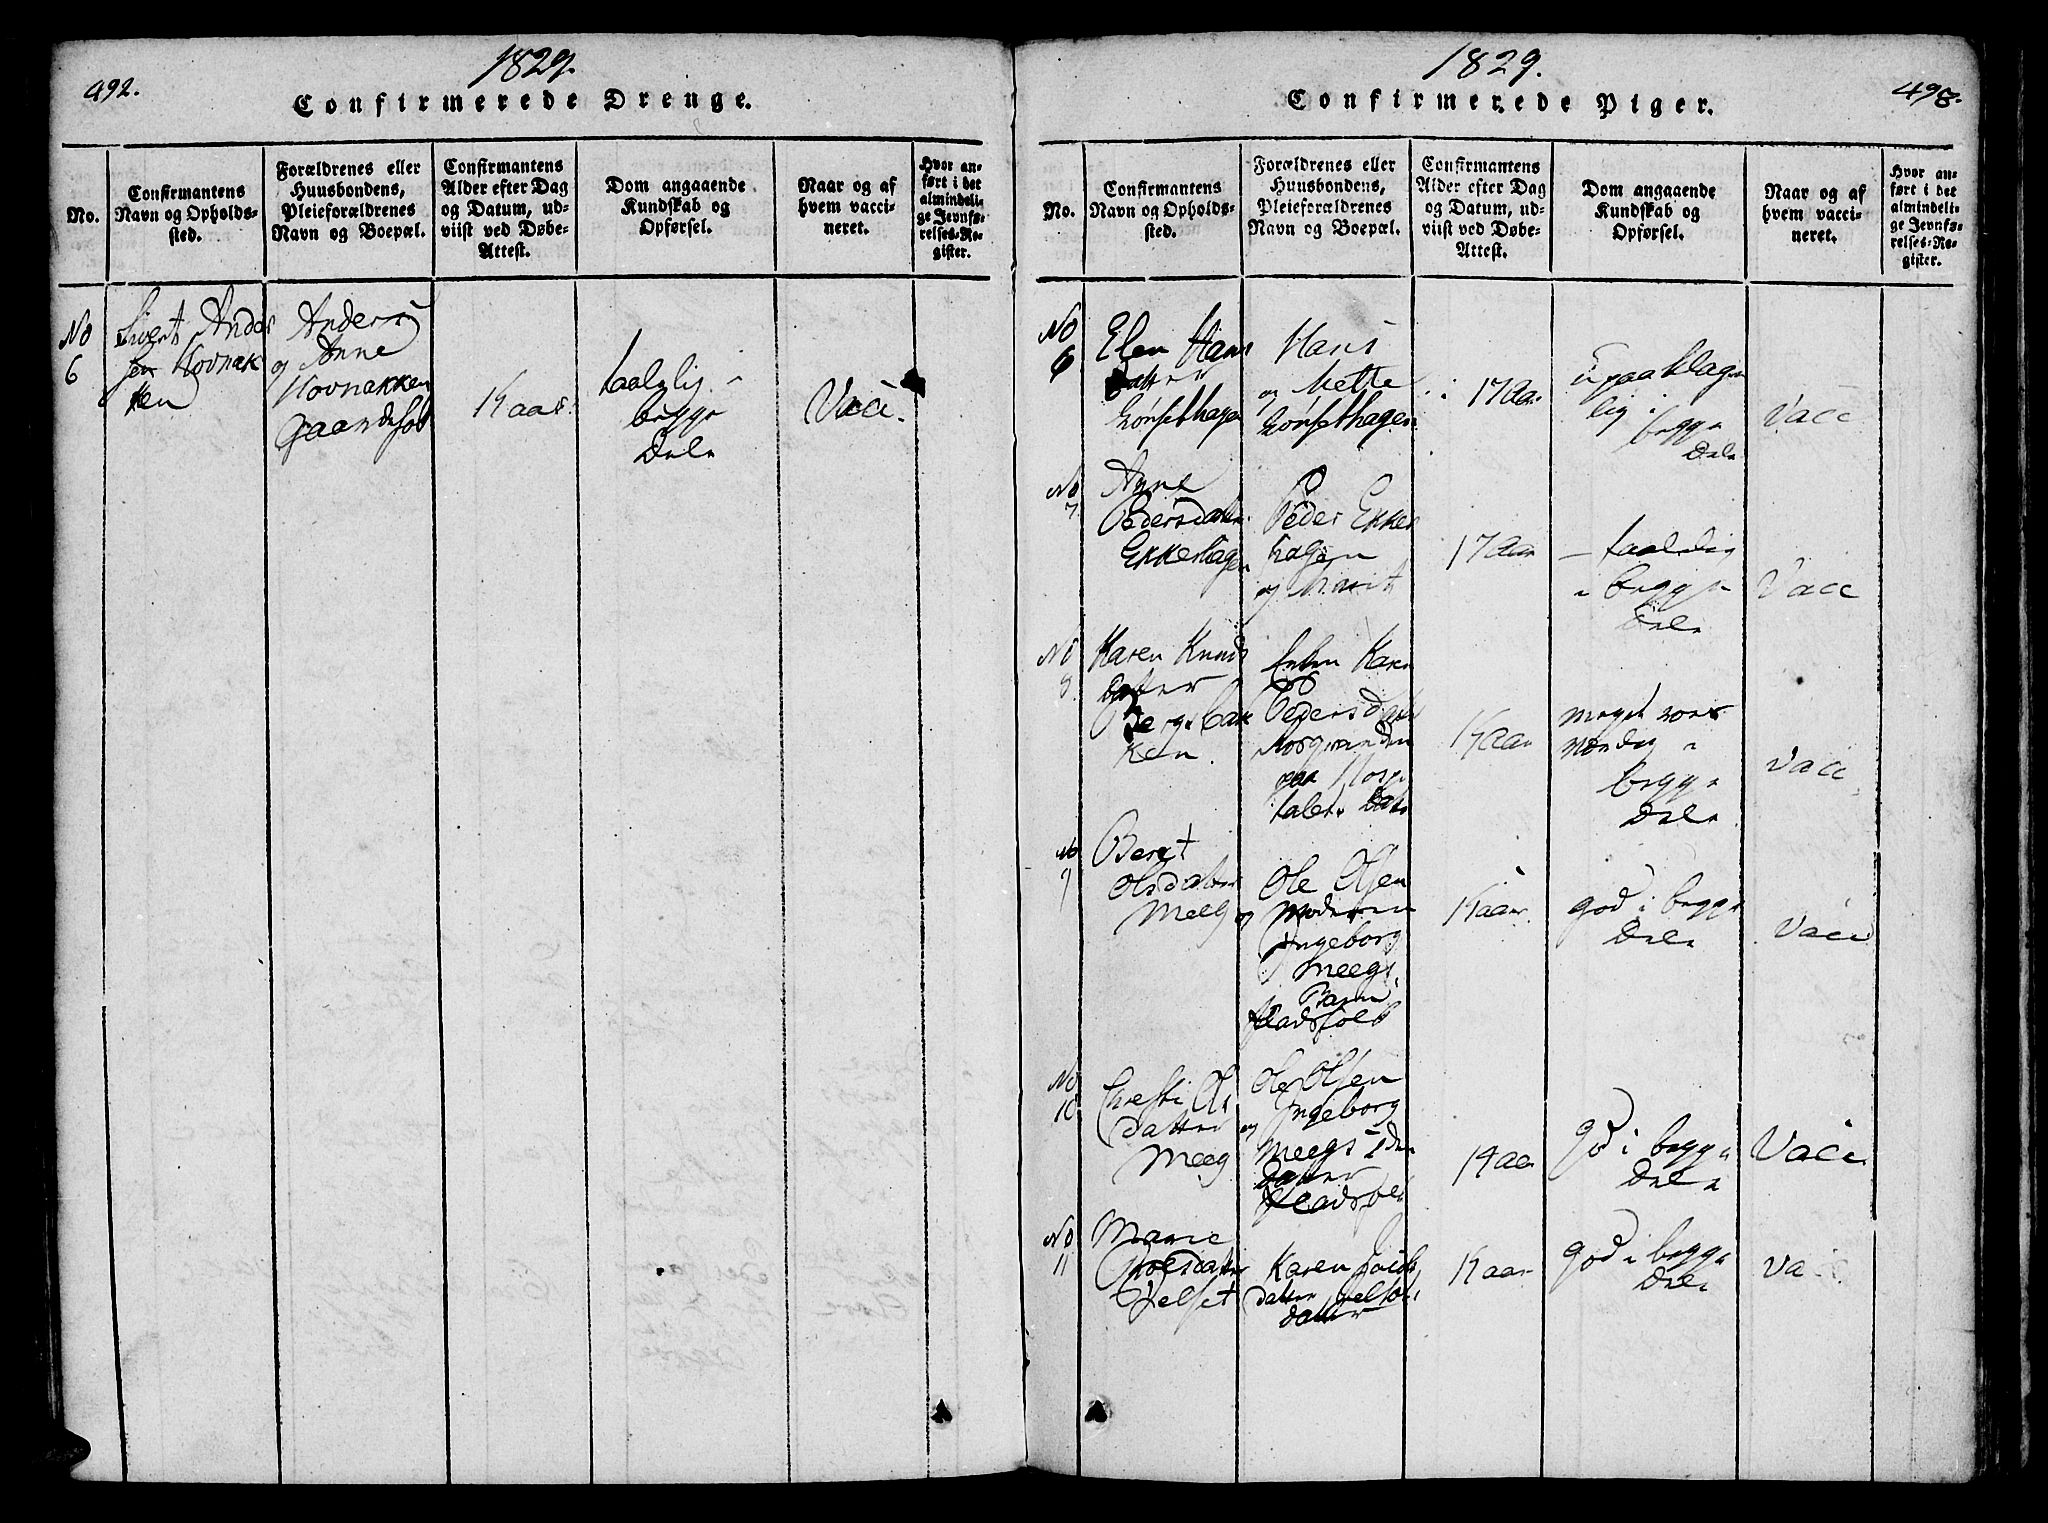 492.
1829.
Confirmerede Drenge.
No.
Confirmantens
Navn og Opholds-
sted.
Forældrenes eller
Huusbondens,
Pleieforældrenes
Navn og Boepæl.
Confirmantens
Alder efter Dag
og Datum, ud-
viist ved Døbe-
Attest.
Dom angaaende
Kundskab og
Opførsel.
Naar og af
hvem vacci-
neret.
Hvor an-
ført i det
almindeli-
ge Jevnfø-
relses-Re-
gister.
No
6
Sivert Anders
sen Hovnak
ken
Anders
og Anne
Hovnakken
Gaardsfol
taalelig i
begge
Dele
Vacc.
1829.
Confirmerede Piger.
No.
Confirmantens
Navn og Opholds-
sted.
Forældrenes eller
Huusbondens,
Pleieforældrenes
Navn og Boepæl.
Confirmantens
Alder efter Dag
og Datum, ud-
viist ved Døbe-
Attest.
Dom angaaende
Kundskab og
Opførsel.
Naar og af
hvem vacci-
neret.
Hvor an-
ført i det
almindeli-
ge Jevnfø-
relses-Re-
gister.
No
6
Elen Hans
Datter
Lønsethagen
Hans
og Mette
Lønsethagen
17 Aar
upaaklage
lig i
begge
Dele
Vacc
No
7
Anne
Pedersdatter
Ekkerhagen
Peder Ekker
hagen
og Marit
17 Aar
taalelig
i begge
Dele
Vacc
No
8
Karen Knuds
datter
Bergsbak
ken
Karen
Pedersdatter
paa Hospi
talet
meget
begge
Dele
Vacc
No
9
Beret
Olsdatter
Meeg
Ole Olsen
og Moderen
Ingeborg
Meegs
Barn
Pladsfolk
god i begge
Dele
Vacc
No
10
Ols
datter
Meeg
Ole Olsen
og Ingeborg
Meegs 2den
Datter
Pladsfolk
14 aar
God i begge
Dele
Vacc
No
11
Marie
Hjelset
Karen
datter
datter
God i begge
Dele
Va